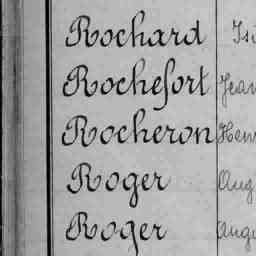 Rochard
Rochefort Jean
Rocheron Henr
Roger Aug
Roger Augu